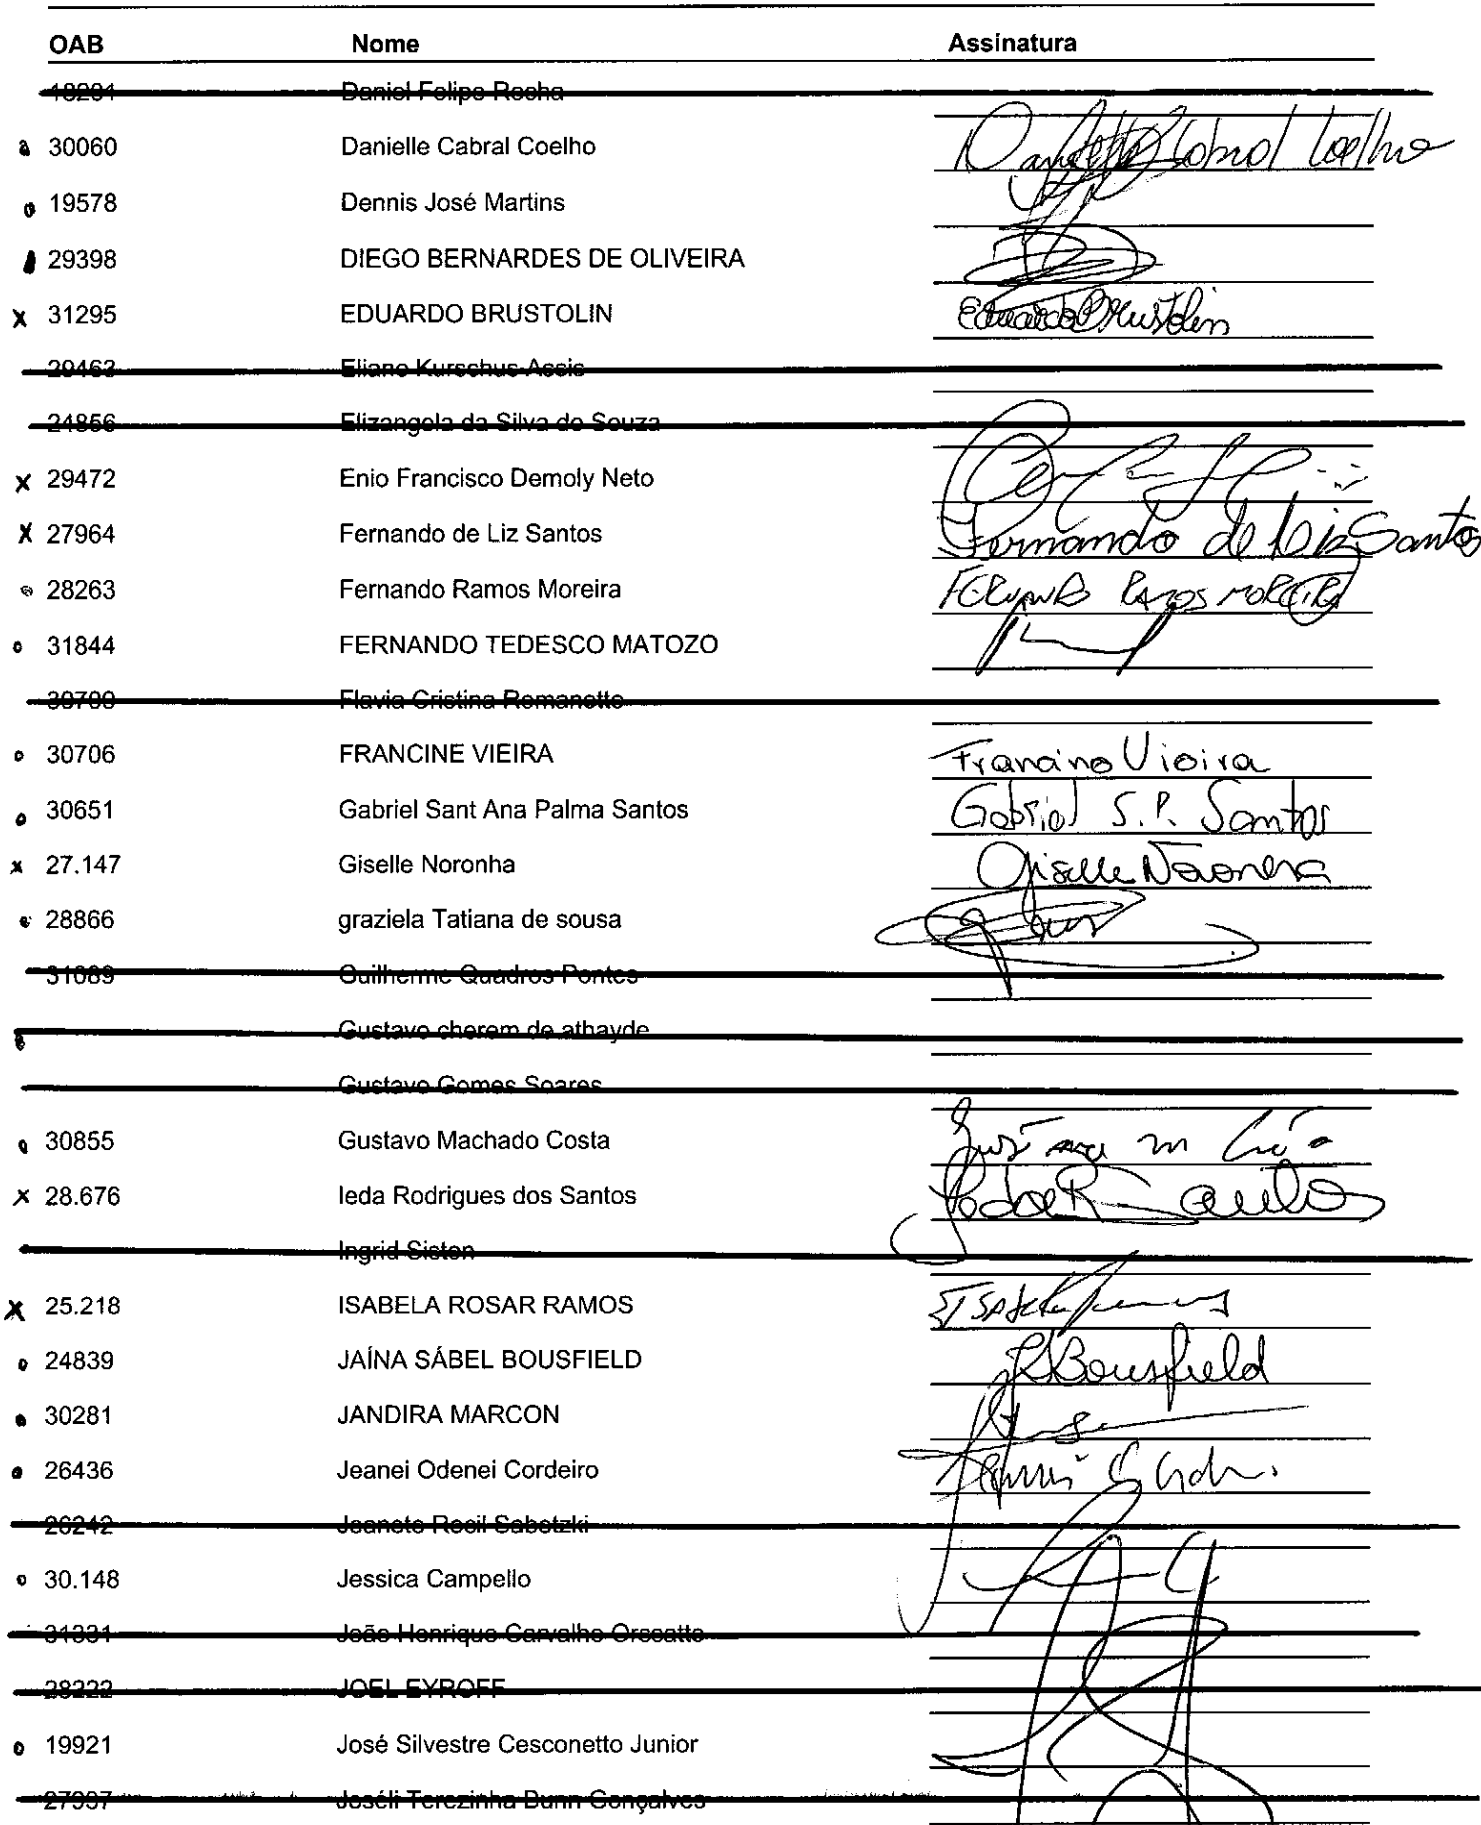 OAB Nome Assinatura
18201 Daniel Felipe Rocha
30060 Danielle Cabral Coelho Danielle Cabral Coelho
19578 Dennis José Martins
29398 DIEGO BERNARDES DE OLIVEIRA
x 31295 EDUARDO BRUSTOLIN Eduardo Brustolin
29463 Eliane Kurschus Assis
24856 Elizangela da Silva de Souza
x 29472 Enio Francisco Demoly Neto
x 27964 Fernando de Liz Santos Fernando de Liz Santos
28263 Fernando Ramos Moreira FERNANDO RAMOS MOREIRA
31844 FERNANDO TEDESCO MATOZO
Flavia Cristina Romanetto
30706 FRANCINE VIEIRA Francine Vieira
30651 Gabriel Sant Ana Palma Santos Gabriel S. P. Santos
x 27.147 Giselle Noronha Giselle Noronha
28866 graziela Tatiana de sousa
31089 Guilherme Quadros Pontes
Gustavo cherem de athayde
Gustavo Gomes Soares
30855 Gustavo Machado Costa
x 28.676 Ieda Rodrigues dos Santos Ieda R Santos
Ingrid Sisten
x 25.218 ISABELA ROSAR RAMOS
24839 JAÍNA SÁBEL BOUSFIELD Bousfield
30281 JANDIRA MARCON
26436 Jeanei Odenei Cordeiro
26242 Jeanete Resil Sabotzki
30.148 Jessica Campello
31331 João Henrique Carvalho Orssatto
28222 JOEL EYROFF
19921 José Silvestre Cesconetto Junior
Joséli Terezinha Bunn Gonçalves